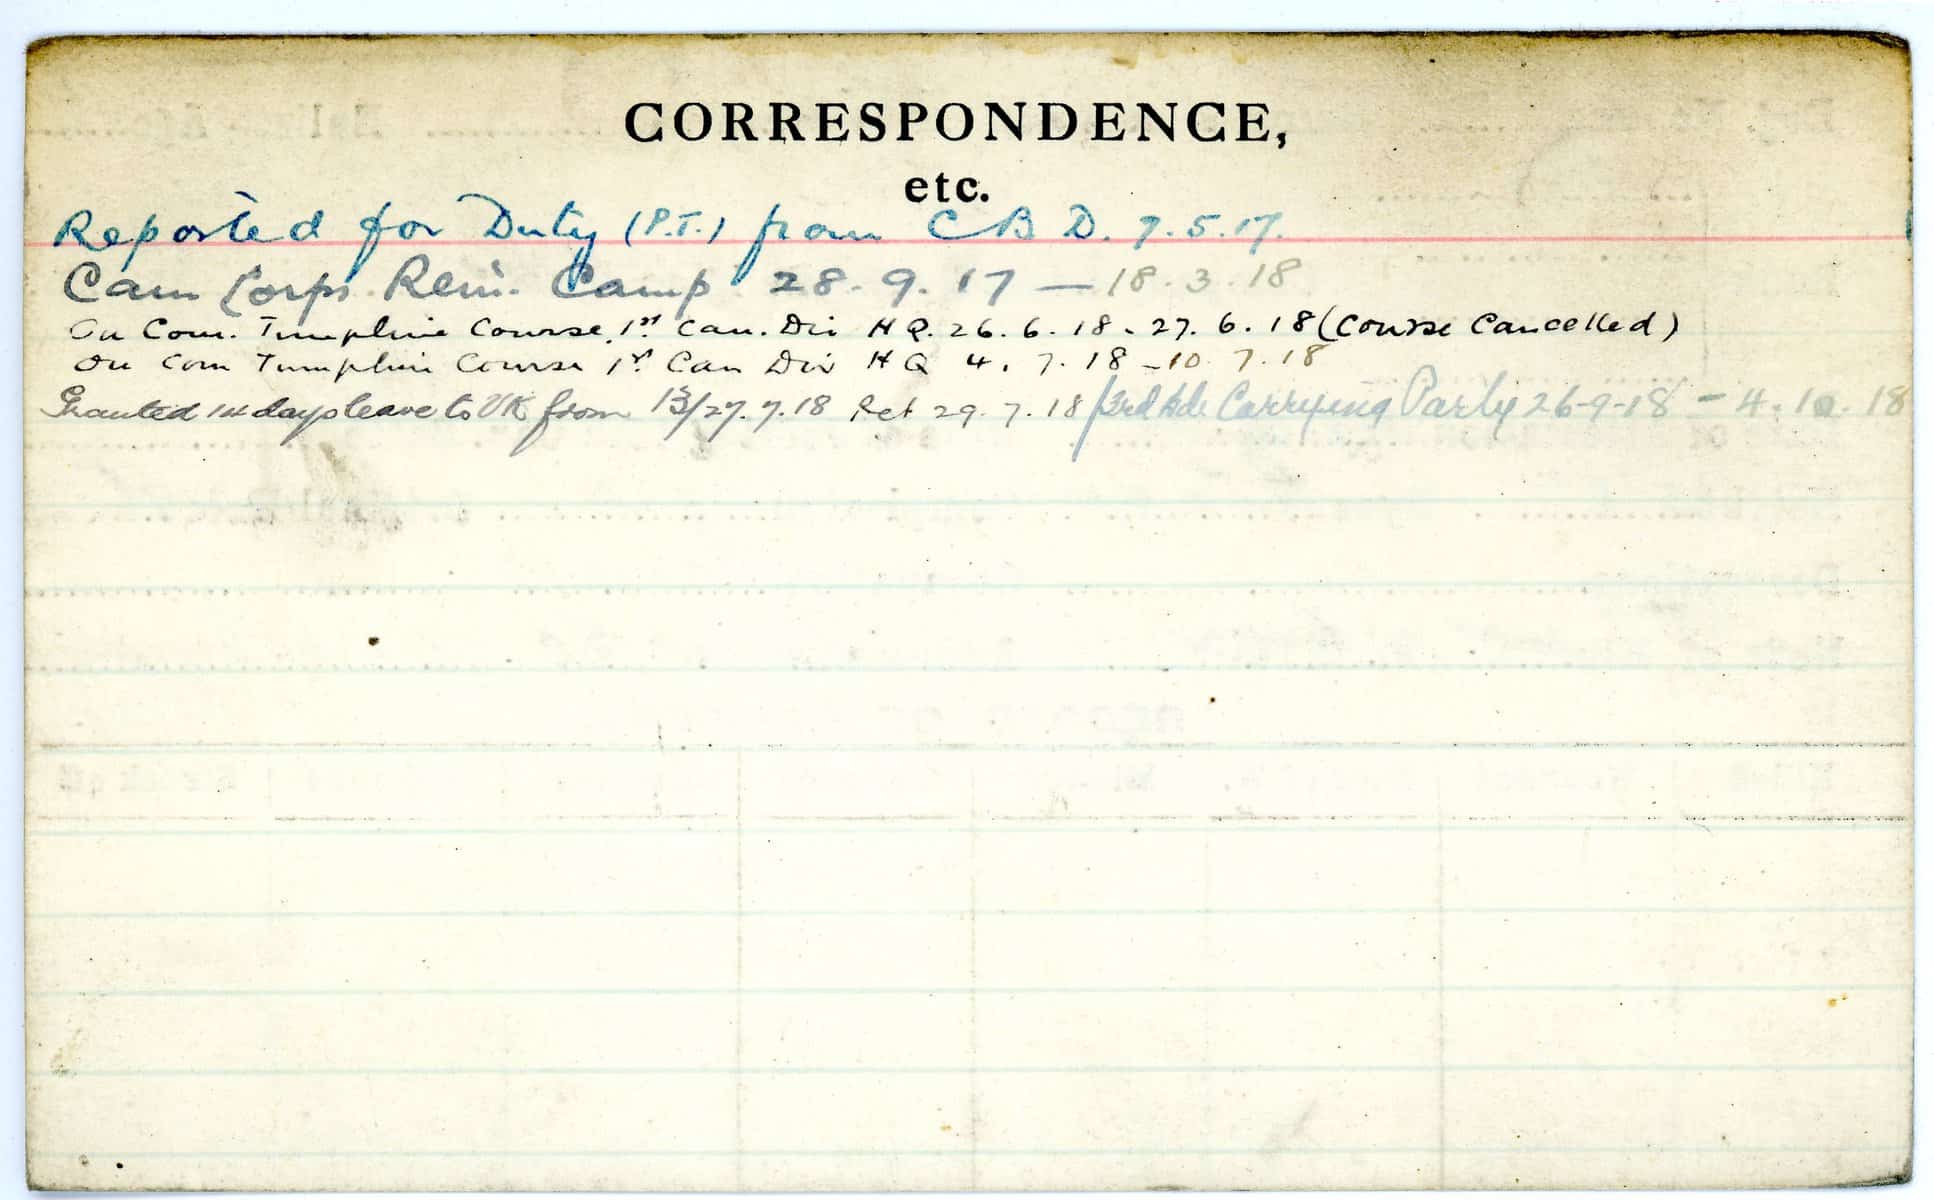 CORRESPONDENCE,
etc.
Reported for Duty (P.T.) from C B D. 7.5.17.
Can Corps Rein. Camp 28.9.17 — 18.3.18
On Com. Tumpline Course, 1st Can. Div H Q. 26.6.18 - 27.6.18 (Course Cancelled)
On Com Tumpline Course 1st Can Div H Q 4.7.18 - 10.7.18
Granted 14 days leave to UK from 13/27.7.18 Ret 29.7.18 / 3rd Bde Carrying Party 26-9-18 - 4.10.18